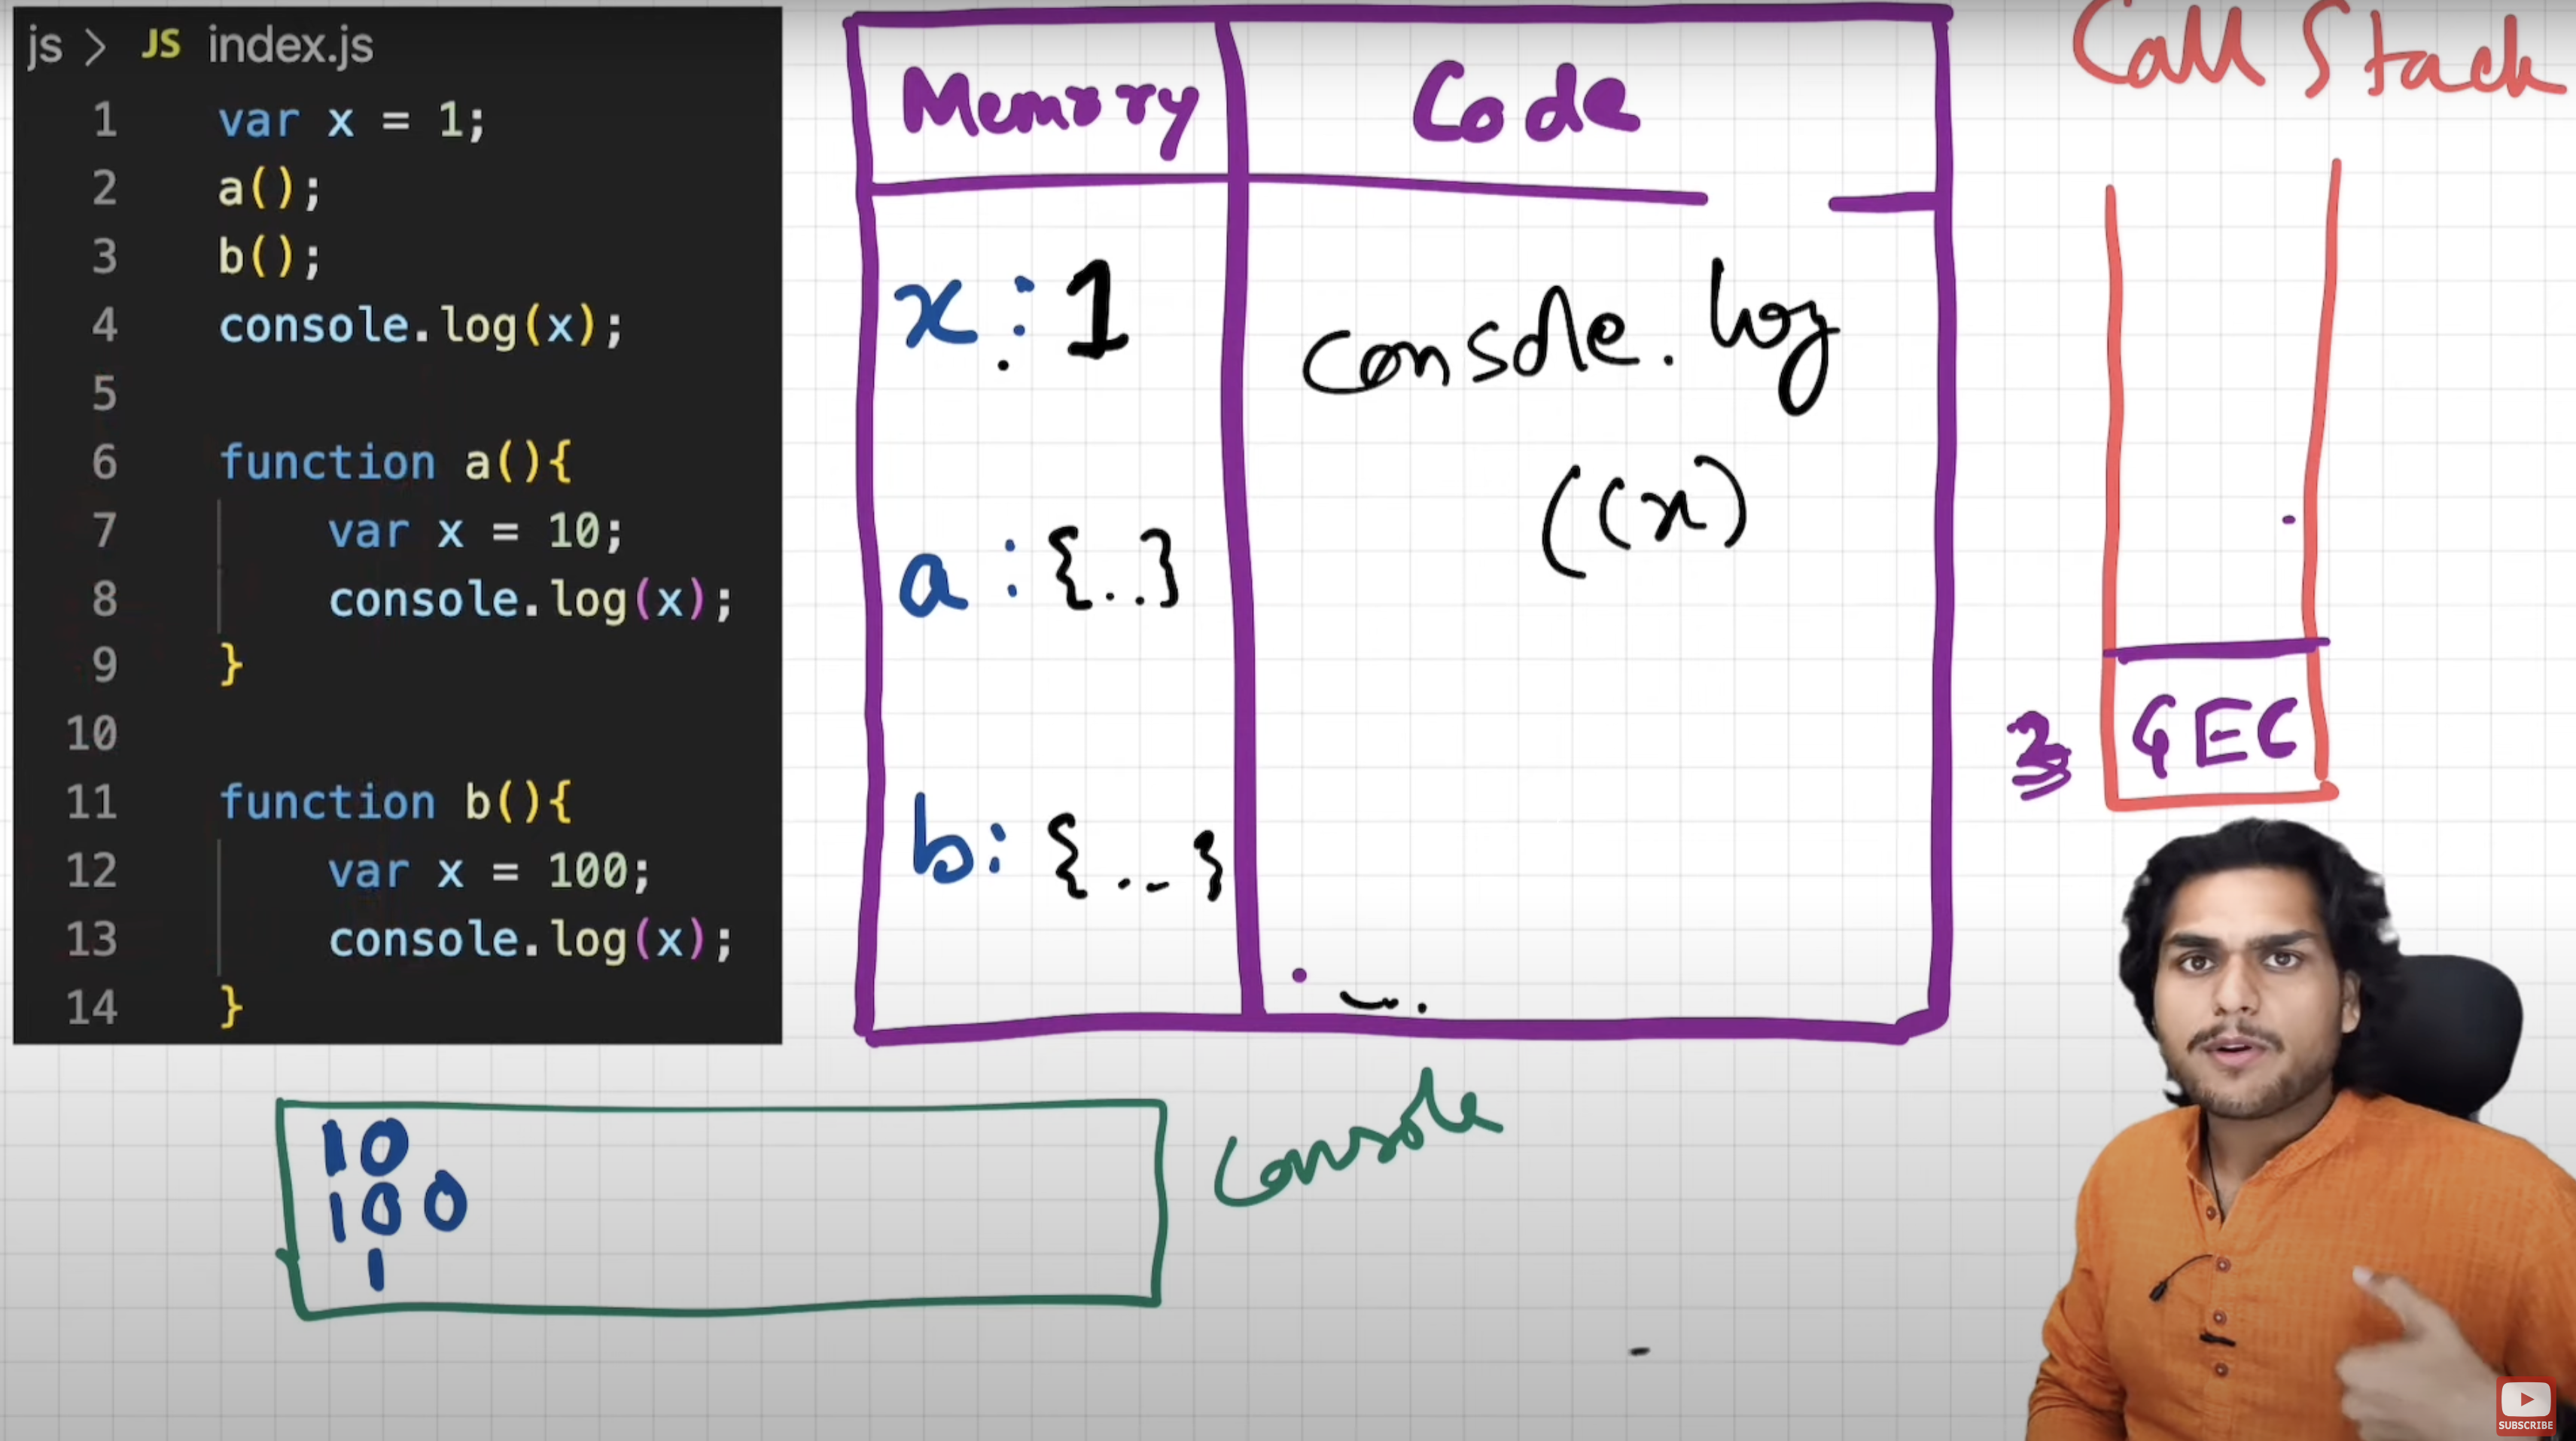 js > JS index.js
1 var x = 1;
2 a();
3 b();
4 console.log(x);
5
6 function a(){
7 var x = 10;
8 console.log(x);
9 }
10
11 function b(){
12 var x = 100;
13 console.log(x);
14 }
Memory Code
x : 1
console.log
((x)
a : {..}
b: {...}
Call Stack
GEC
10
100
1
Console
SUBSCRIBE